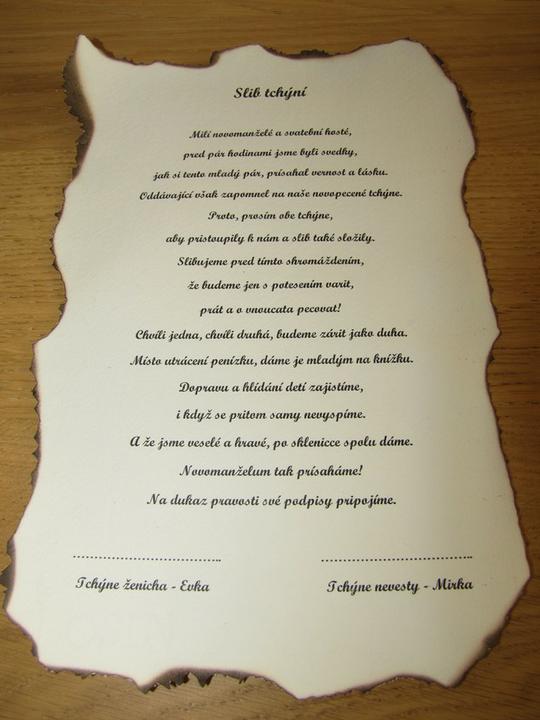 Slib tchýní
Milí novomanželé a svatební hosté,
pred pár hodinami jsme byli svedky,
jak si tento mladý pár, prísahal vernost a lásku.
Oddávající však zapomnel na naše novopecené tchýne.
Proto, prosím obe tchýne,
aby pristoupily k nám a slib také složily.
Slibujeme pred tímto shromáždením,
že budeme jen s potesením varit,
prát a o vnoucata pecovat!
Chvíli jedna, chvíli druhá, budeme zárit jako duha.
Místo utrácení penízku, dáme je mladým na knížku.
Dopravu a hlídání detí zajistíme,
i když se pritom samy nevyspíme.
A že jsme veselé a hravé, po sklenicce spolu dáme.
Novomanželum tak prísaháme!
Na dukaz pravosti své podpisy pripojíme.
Tchýne ženicha - Evka
Tchýne nevesty - Mirka